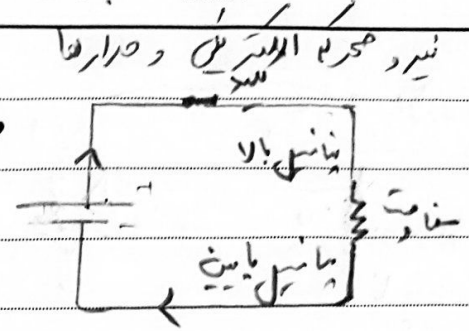 نیرو محرکه الکتریکی و مدارها
کلید
پتانسیل بالا
مقاومت
پتانسیل پایین